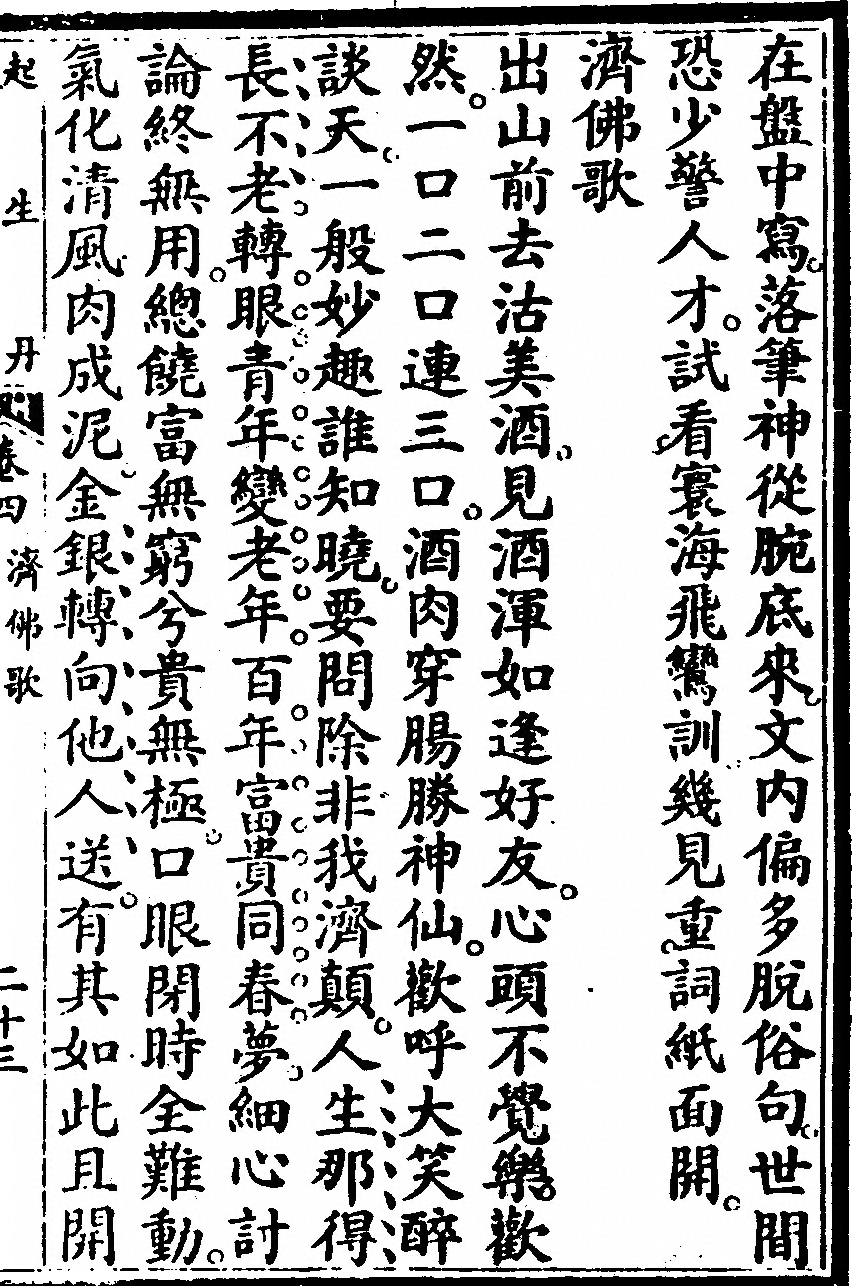 在盤中寫落筆神從腕底來文内偏多脫俗句世間
恐少警人才試看寰海飛鸞訓幾見重詞紙面開
濟佛歌
出山前去沽美酒見酒渾如逢好友心頭不覺樂歡
然一口二口連三口酒肉穿腸勝神仙歡呼大笑醉
談天一般妙趣誰知曉要問除非我濟顛人生那得
長不老轉眼青年變老年百年富貴同春夢細心討
論終無用總饒富無窮兮貴無極口眼閉時全難動
氣化清風肉成泥金銀轉向他人送有其如此且開
起生丹 卷四 濟佛歌 二十三